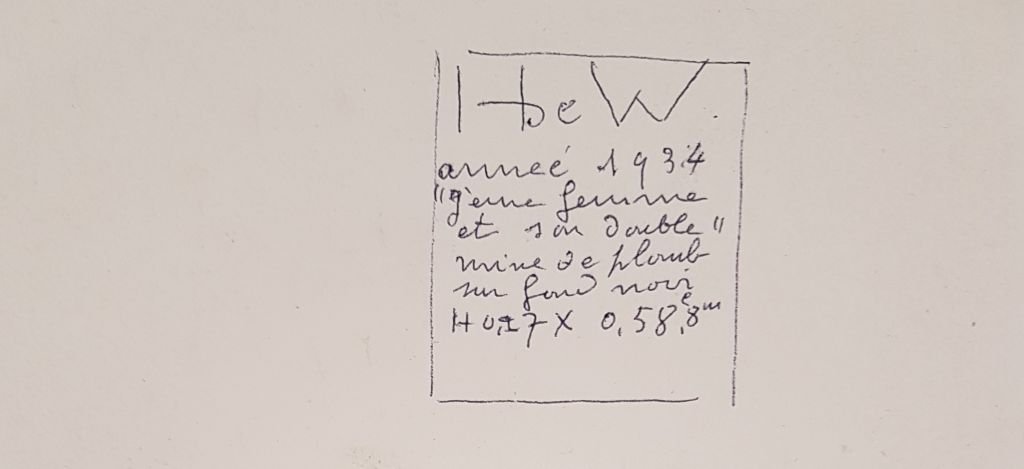 H de W.
anneé 1934
"jeune femme
et son double"
mine de plomb
sur fond noir
H 0,27 X 0,58,8 cm